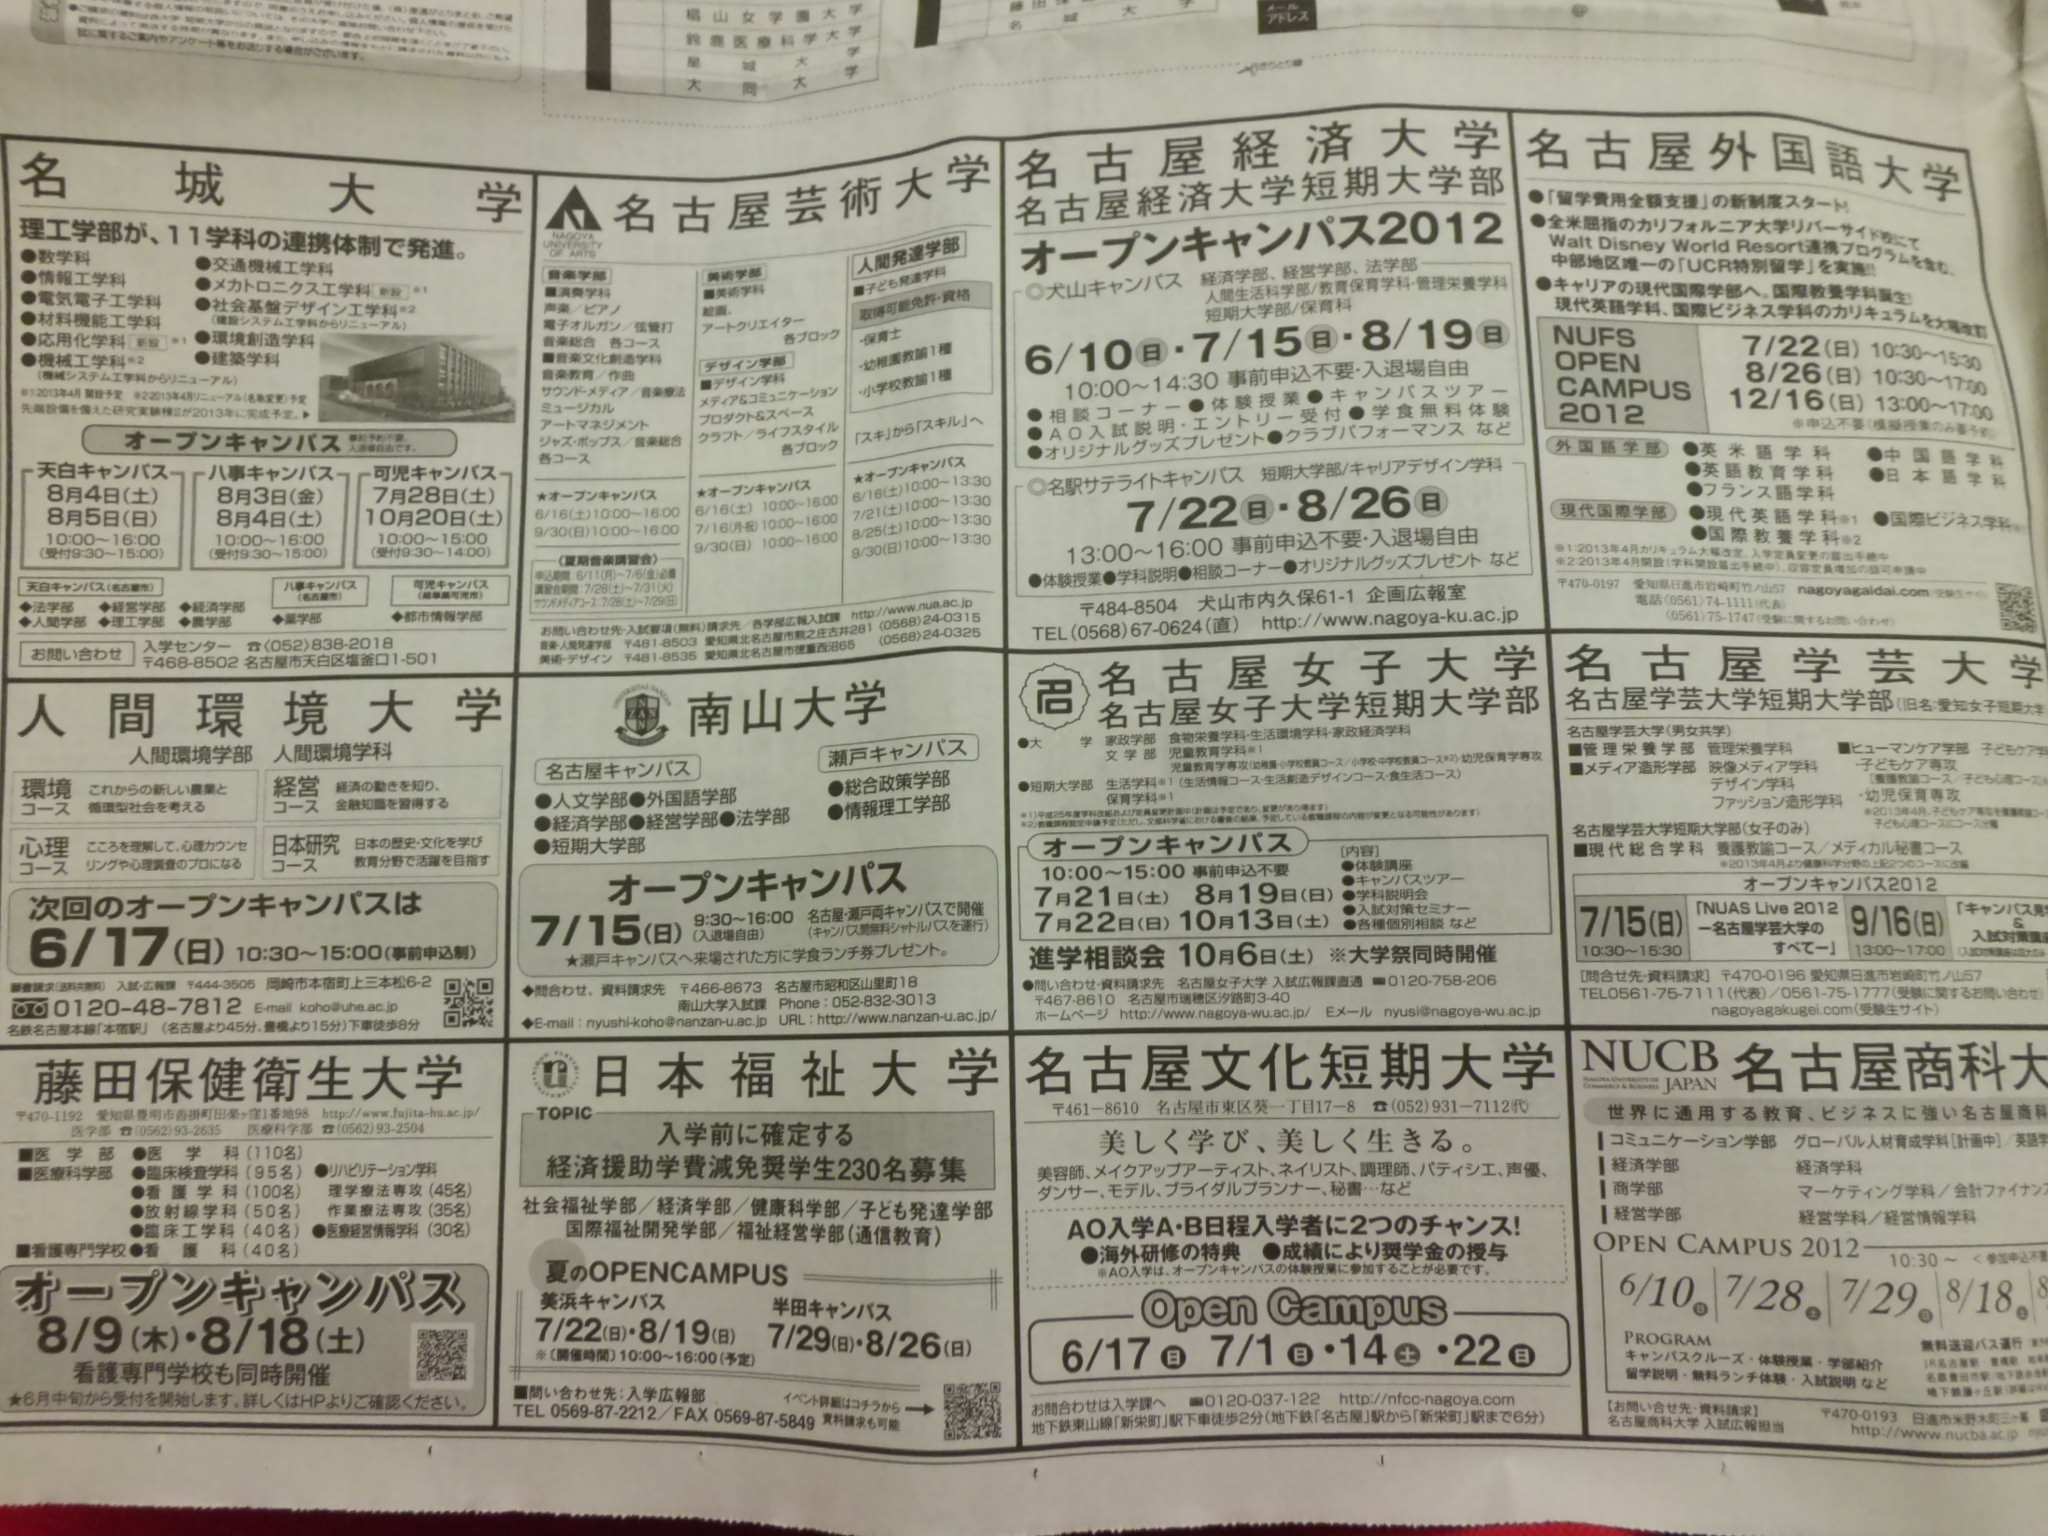 椙山女学園大学
鈴鹿医療科学大学
星城大学
大同大学
メール
アドレス
きりとり線
名城大学
理工学部が、11学科の連携体制で発進。
●数学科
●情報工学科
●電気電子工学科
●材料機能工学科
●応用化学科 新設 ※1
●機械工学科※2
(機械システム工学科からリニューアル)
●交通機械工学科
●メカトロニクス工学科 新設 ※1
●社会基盤デザイン工学科※2
(建設システム工学科からリニューアル)
●環境創造学科
●建築学科
※1:2013年4月 開設予定 ※2:2013年4月リニューアル(名称変更)予定
先端設備を備えた研究実験棟Ⅱが2013年に完成予定。▶
オープンキャンパス 事前予約不要、入退場自由です。
天白キャンパス
8月4日(土)
8月5日(日)
10:00〜16:00
(受付9:30〜15:00)
八事キャンパス
8月3日(金)
8月4日(土)
10:00〜16:00
(受付9:30〜15:00)
可児キャンパス
7月28日(土)
10月20日(土)
10:00〜15:00
(受付9:30〜14:00)
天白キャンパス(名古屋市)
◆法学部 ◆経営学部 ◆経済学部
◆人間学部 ◆理工学部 ◆農学部
八事キャンパス
(名古屋市)
◆薬学部
可児キャンパス
(岐阜県可児市)
◆都市情報学部
お問い合わせ
入学センター ☎(052)838-2018
〒468-8502 名古屋市天白区塩釜口1-501
NAGOYA
UNIVERSITY
OF ARTS
名古屋芸術大学
音楽学部
■演奏学科
声楽／ピアノ
電子オルガン／弦管打
音楽総合 各コース
■音楽文化創造学科
音楽教育／作曲
サウンド・メディア／音楽療法
ミュージカル
アートマネジメント
ジャズ・ポップス／音楽総合
各コース
★オープンキャンパス
6/16(土)10:00〜16:00
9/30(日)10:00〜16:00
〈夏期音楽講習会〉
申込期間:6/11(月)〜7/6(金)必着
講習会期間:7/28(土)〜7/31(火)
サウンドメディアコース:7/28(土)〜7/29(日)
美術学部
■美術学科
絵画、
アートクリエイター
各ブロック
デザイン学部
■デザイン学科
メディア&コミュニケーション
プロダクト&スペース
クラフト／ライフスタイル
各ブロック
★オープンキャンパス
6/16(土) 10:00〜16:00
7/16(月・祝) 10:00〜16:00
9/30(日) 10:00〜16:00
人間発達学部
■子ども発達学科
取得可能免許・資格
・保育士
・幼稚園教諭1種
・小学校教諭1種
「スキ」から「スキル」へ
★オープンキャンパス
6/16(土)10:00〜13:30
7/21(土)10:00〜13:30
8/25(土)10:00〜13:30
9/30(日)10:00〜13:30
お問い合わせ先・入試要項(無料)請求先／各学部広報入試課 http://www.nua.ac.jp
音楽・人間発達学部 〒481-8503 愛知県北名古屋市熊之庄古井281 (0568)24-0315
美術・デザイン 〒481-8535 愛知県北名古屋市徳重西沼65 (0568)24-0325
名古屋経済大学
名古屋経済大学短期大学部
オープンキャンパス2012
◎犬山キャンパス 経済学部、経営学部、法学部
人間生活科学部/教育保育学科・管理栄養学科
短期大学部/保育科
6/10㊐・7/15㊐・8/19㊐
10:00〜14:30 事前申込不要・入退場自由
●相談コーナー●体験授業●キャンパスツアー
●AO入試説明・エントリー受付●学食無料体験
●オリジナルグッズプレゼント●クラブパフォーマンス など
◎名駅サテライトキャンパス 短期大学部/キャリアデザイン学科
7/22㊐・8/26㊐
13:00〜16:00 事前申込不要・入退場自由
●体験授業●学科説明●相談コーナー●オリジナルグッズプレゼント など
〒484-8504 犬山市内久保61-1 企画広報室
TEL(0568)67-0624(直) http://www.nagoya-ku.ac.jp
名古屋外国語大学
●「留学費用全額支援」の新制度スタート!
●全米屈指のカリフォルニア大学リバーサイド校にて
Walt Disney World Resort連携プログラムを含む、
中部地区唯一の「UCR特別留学」を実施!!
●キャリアの現代国際学部へ。国際教養学科誕生!
現代英語学科、国際ビジネス学科のカリキュラムを大幅改訂
NUFS
OPEN
CAMPUS
2012
7/22(日) 10:30〜15:30
8/26(日) 10:30〜17:00
12/16(日) 13:00〜17:00
※申込不要(模擬授業のみ要予約)
外国語学部
●英米語学科 ●中国語学科
●英語教育学科 ●日本語学科
●フランス語学科
現代国際学部
●現代英語学科※1 ●国際ビジネス学科
●国際教養学科※2
※1:2013年4月カリキュラム大幅改定、入学定員変更の届出手続中
※2:2013年4月開設(学科開設届出手続中)、収容定員増加の認可申請中
〒470-0197 愛知県日進市岩崎町竹ノ山57 nagoyagaidai.com
電話(0561)74-1111(代表)
(0561)75-1747(受験に関するお問い合わせ)
人間環境大学
人間環境学部 人間環境学科
環境コース これからの新しい農業と循環型社会を考える
経営コース 経済の動きを知り、金融知識を習得する
心理コース こころを理解して、心理カウンセリングや心理調査のプロになる
日本研究コース 日本の歴史・文化を学び教育分野で活躍を目指す
次回のオープンキャンパスは
6/17(日) 10:30〜15:00(事前申込制)
願書請求(送料共無料) 入試・広報課 〒444-3505 岡崎市本宿町上三本松6-2
0120-48-7812 E-mail koho@uhe.ac.jp
名鉄名古屋本線「本宿駅」(名古屋より45分、豊橋より15分)下車徒歩8分
南山大学
名古屋キャンパス
●人文学部●外国語学部
●経済学部●経営学部●法学部
●短期大学部
瀬戸キャンパス
●総合政策学部
●情報理工学部
オープンキャンパス
7/15(日) 9:30〜16:00 (入退場自由) 名古屋・瀬戸両キャンパスで開催 (キャンパス間無料シャトルバスを運行)
★瀬戸キャンパスへ来場された方に学食ランチ券プレゼント。
◆問合わせ、資料請求先 〒466-8673 名古屋市昭和区山里町18
南山大学入試課 Phone：052-832-3013
◆E-mail：nyushi-koho@nanzan-u.ac.jp URL：http://www.nanzan-u.ac.jp/
名古屋女子大学
名古屋女子大学短期大学部
●大学 家政学部 食物栄養学科・生活環境学科・家政経済学科
文学部 児童教育学科※1
児童教育学専攻(幼稚園・小学校教員コース/小学校・中学校教員コース※2)・幼児保育学専攻
●短期大学部 生活学科※1 (生活情報コース・生活創造デザインコース・食生活コース)
保育学科※1
※1)平成25年度学科改組および定員変更計画中(計画は予定であり、変更があり得ます)
※2)教職課程認定申請予定(ただし、文部科学省における審査の結果、予定している教職課程の内容が変更となる可能性があります)
オープンキャンパス
10:00〜15:00 事前申込不要
7月21日(土) 8月19日(日)
7月22日(日) 10月13日(土)
[内容]
●体験講座
●キャンパスツアー
●学科説明会
●入試対策セミナー
●各種個別相談 など
進学相談会 10月6日(土) ※大学祭同時開催
●問い合わせ・資料請求先 名古屋女子大学 入試広報課直通 0120-758-206
〒467-8610 名古屋市瑞穂区汐路町3-40
ホームページ http://www.nagoya-wu.ac.jp/ Eメール nyusi@nagoya-wu.ac.jp
名古屋学芸大学
名古屋学芸大学短期大学部(旧名:愛知女子短期大学
名古屋学芸大学(男女共学)
■管理栄養学部 管理栄養学科
■メディア造形学部 映像メディア学科
デザイン学科
ファッション造形学科
■ヒューマンケア学部 子どもケア学
・子どもケア専攻
[養護教諭コース／子ども心理コース]
・幼児保育専攻
名古屋学芸大学短期大学部(女子のみ)
■現代総合学科 養護教諭コース／メディカル秘書コース
※2013年4月より健康科学分野の上記2つのコースに改編
オープンキャンパス2012
7/15(日) 10:30〜15:30
「NUAS Live 2012
ー名古屋学芸大学の
すべてー」
9/16(日) 13:00〜17:00
「キャンパス見学
&
入試対策講座
[問合せ先・資料請求] 〒470-0196 愛知県日進市岩崎町竹ノ山57
TEL0561-75-7111(代表)／0561-75-1777(受験に関するお問い合わせ)
nagoyagakugei.com(受験生サイト)
藤田保健衛生大学
〒470-1192 愛知県豊明市沓掛町田楽ヶ窪1番地98 http://www.fujita-hu.ac.jp/
医学部 ☎(0562)93-2635 医療科学部 ☎(0562)93-2504
■医学部 ●医学科(110名)
■医療科学部 ●臨床検査学科(95名) ●リハビリテーション学科
●看護学科(100名) 理学療法専攻(45名)
●放射線学科(50名) 作業療法専攻(35名)
●臨床工学科(40名) ●医療経営情報学科(30名)
■看護専門学校●看護科(40名)
オープンキャンパス
8/9(木)・8/18(土)
看護専門学校も同時開催
★6月中旬から受付を開始します。詳しくはHPよりご確認ください。
日本福祉大学
TOPIC
入学前に確定する
経済援助学費減免奨学生230名募集
社会福祉学部／経済学部／健康科学部／子ども発達学部
国際福祉開発学部／福祉経営学部(通信教育)
夏のOPENCAMPUS
美浜キャンパス
7/22(日)・8/19(日)
半田キャンパス
7/29(日)・8/26(日)
※〔開催時間〕10:00〜16:00(予定)
■問い合わせ先：入学広報部
TEL 0569-87-2212／FAX 0569-87-5849
イベント詳細はコチラから
資料請求も可能
名古屋文化短期大学
〒461-8610 名古屋市東区葵一丁目17-8 ☎(052)931-7112㈹
美しく学び、美しく生きる。
美容師、メイクアップアーティスト、ネイリスト、調理師、パティシエ、声優、
ダンサー、モデル、ブライダルプランナー、秘書…など
AO入学A・B日程入学者に2つのチャンス!
●海外研修の特典 ●成績により奨学金の授与
※AO入学は、オープンキャンパスの体験授業に参加することが必要です。
Open Campus
6/17㊐ 7/1㊐・14㊏・22㊐
お問合わせは入学課へ 0120-037-122 http://nfcc-nagoya.com
地下鉄東山線「新栄町」駅下車徒歩2分(地下鉄「名古屋」駅から「新栄町」駅まで6分)
NUCB JAPAN
NAGOYA UNIVERSITY OF
COMMERCE & BUSINESS
名古屋商科大
世界に通用する教育、ビジネスに強い名古屋商科
コミュニケーション学部 グローバル人材育成学科[計画中]／英語学
経済学部 経済学科
商学部 マーケティング学科／会計ファイナンス
経営学部 経営学科／経営情報学科
OPEN CAMPUS 2012 10:30〜 <参加申込不要
6/10㊐ 7/28㊏ 7/29㊐ 8/18㊏
PROGRAM
キャンパスクルーズ・体験授業・学部紹介
留学説明・無料ランチ体験・入試説明 など
無料送迎バス運行
【お問い合せ先・資料請求】
名古屋商科大学 入試広報担当
〒470-0193 日進市米野木町三ヶ峯
http://www.nucba.ac.jp